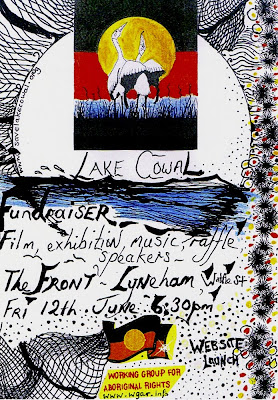 www.savelakecowal.org
LAKE COWAL
FUNDRAISER
Film, exhibition, music, raffle
~ speakers ~
THE FRONT ~ Lyneham Wattle St
Fri 12th June 6.30pm
WEBSITE
LAUNCH
WORKING GROUP FOR
ABORIGINAL RIGHTS
www.wgar.info